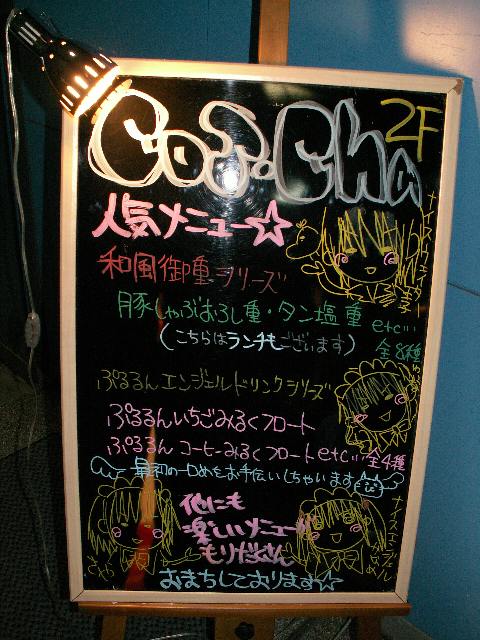 Cos・Cha
2F
人気メニュー☆
和風御重シリーズ
豚しゃぶおろし重・タン塩重 etc…
(こちらはランチもございます) 全8種
ぷるるんエンジェルドリンクシリーズ
ぷるるんいちごみるくフロート
ぷるるんコーヒーみるくフロート etc… 全4種
最初の一口めをお手伝いしちゃいます
他にも
楽しいメニューが
もりだくさん
おまちしております☆